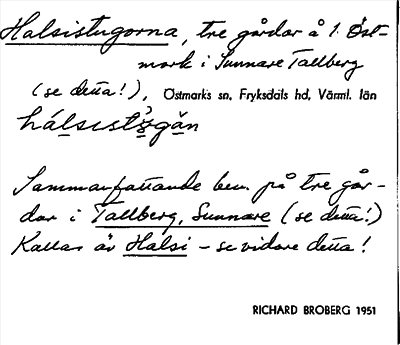 Halsistugorna, tre gårdar å 1. Öst-
mark i Sunnare Tallberg
(se detta!), Östmarks sn, Fryksdals hd, Värml. län
Sammanfattande ben. på tre går-
dar i Tallberg, Sunnare (se detta!)
Kallas äv Halsi – se vidare detta!
RICHARD BROBERG 1951